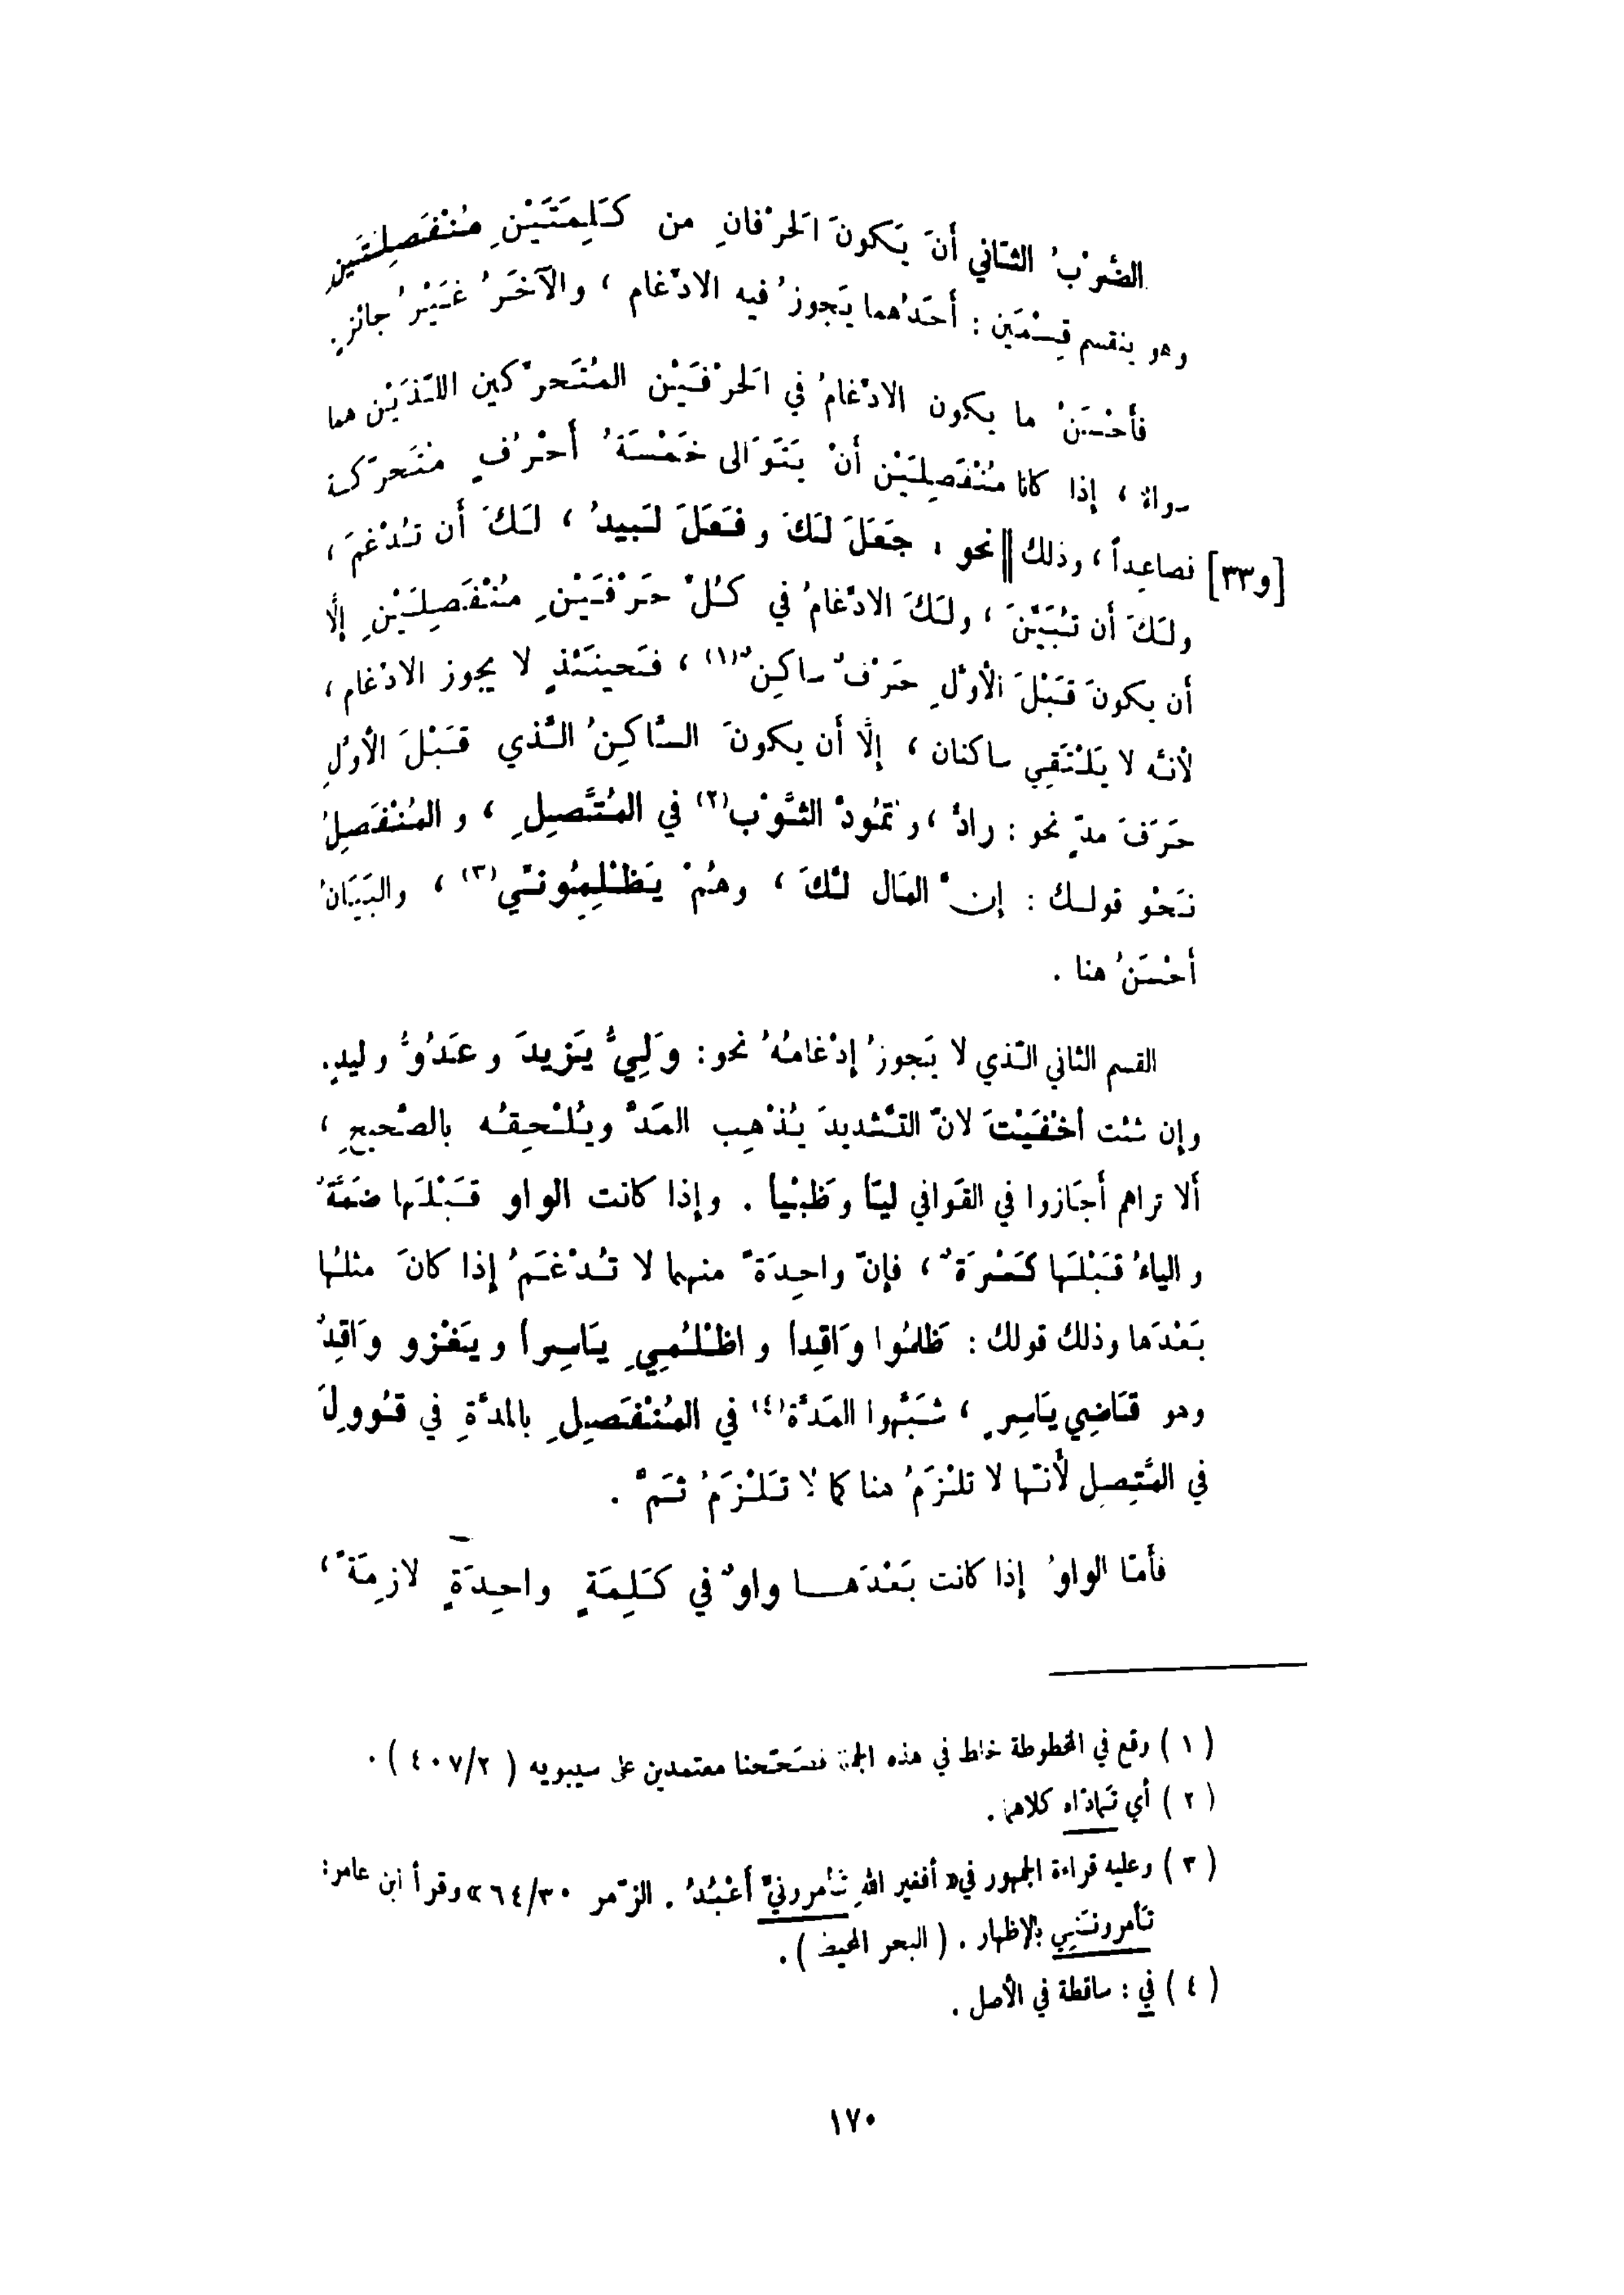 الضَّرْبُ الثّاني أَنَ يَكونَ الحَرْفانِ من كَلِمَتَيْنِ مُنْفَصِلتَينِ
وهو ينقسم قِسْمَين : أَحَدُهما يَجوزُ فيه الادّغام ، والآخَرُ غَيْرُ جائزٍ .
فأَحْسَنُ ما يكون الادّغامُ في الحَرْفَيْن المُتَحرّكين اللّذَيْن هما
سواء ، إذا كانا مُنْفَصِلَيْن أَنْ يَتَوَالى خَمْسَةُ أَحْرُفٍ متَحرّكة
[و٣٣] فصاعِداً ، وذلك || نحو ، جَعَلَ لَكَ وفَعَلَ لَبيدُ ، لَكَ أَن تُدْغمَ ،
ولَكَ أَن تُبَيِّنَ ، ولَكَ الادّغامُ في كُلّ حَرْفَيْنِ مُنْفَصِلَيْنِ إلّا
أن يكونَ قَبْلَ الأوّلِ حَرْفٌ ساكِنٌ(١) ، فَحينَئذٍ لا يجوز الادْغام ،
لأنّه لا يَلْتَقِي ساكنان ، إلّا أن يكونَ السّاكِنُ الّذي قَبْلَ الأوّلِ
حَرَفَ مدٍّ نحو : رادّ ، وتمُودّ الثّوْب(٢) في المُتَّصِلِ ، والمُنْفَصِلُ
نَحْو قولك : إنّ المَال لَّكَ ، وهُمْ يَظْلِمُونّي(٣) ، والبَيَانُ
أحْسَنُ هنا .
القسم الثاني الّذي لا يَجوزُ إدْغامُهُ نحو : وَلِيُّ يَزيدَ وعَدُوُّ وليدٍ .
وإن شئت أخْفَيْتَ لانّ التّشديدَ يُذْهِب المَدَّ ويُلْحِقُه بالصّحيحِ ،
ألا تراهم أجَازوا في القَوافي ليّا وظَبْيا . وإذا كانت الواو قَبْلَها ضَمَّةٌ
والياءُ قَبْلَها كَسْرَةٌ ، فإنّ واحِدَةً منهما لا تُدْغَمُ إذا كانَ مثلُها
بَعْدَها وذلك قولك : ظَلمُوا وَاقِدا واظْلُمِي يَاسِرا ويَغْزو وَاقِدٌ
وهو قَاضِي يَاسِرٍ ، شَبَّهوا المَدَّة(٤) في المُنْفَصِلِ بالمدَّةِ في قُوولَ
في المتَّصِل لأنّها لا تلْزَمُ هنا كما لا تَلْزَمُ ثَمّ .
فأَمّا الواوُ إذا كانت بَعْدَهـا واوٌ في كَلِمَةٍ واحِدَةٍ لازِمَةً ،
(١) وقع في المخطوطة خلط في هذه الجملة فصَحّحنا معتمدين على سيبويه (٤٠٧/٢) .
(٢) أي تَمادّاه كلاهما .
(٣) وعليه قراءة الجمهور في « أفغير اللهِ تَأمرونيّ أعْبُدُ . الزّمر ٦٤/٣٠ » وقرأ ابن عامر :
تَأمرونَنِي بالإظهار . ( البحر المحيط ) .
(٤) في : ساقطة في الأصل .
١٧٠